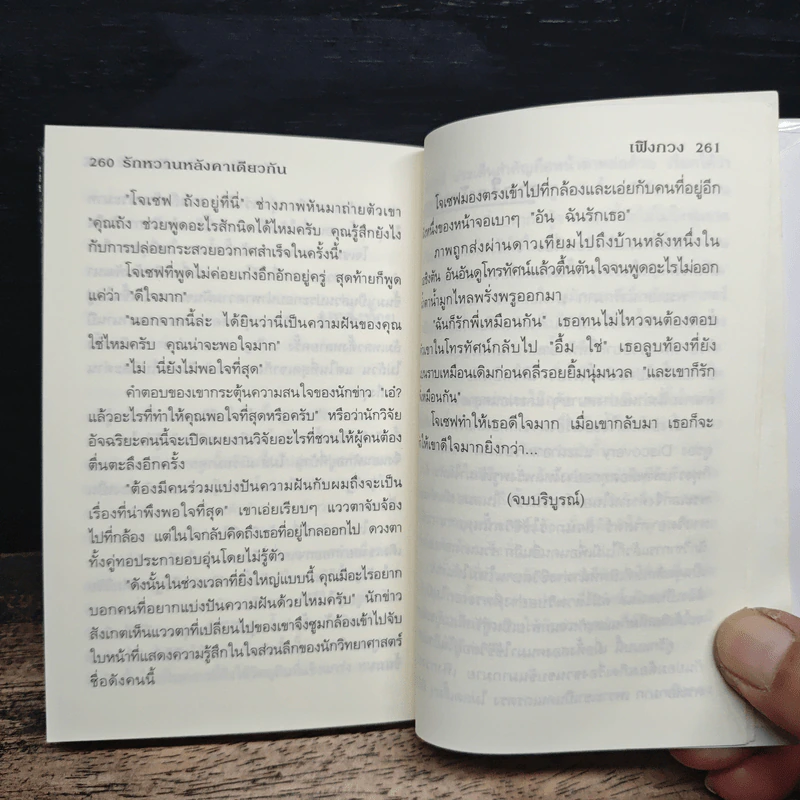 260 รักหวานหลังคาเดียวกัน
"โจเซฟ ถังอยู่ที่นี่" ช่างภาพหันมาถ่ายตัวเขา
"คุณถัง ช่วยพูดอะไรสักนิดได้ไหมครับ คุณรู้สึกยังไง
กับการปล่อยกระสวยอวกาศสำเร็จในครั้งนี้"
โจเซฟที่พูดไม่ค่อยเก่งอึกอักอยู่ครู่ สุดท้ายก็พูด
แค่ว่า "ดีใจมาก"
"นอกจากนี้ล่ะ ได้ยินว่านี่เป็นความฝันของคุณ
ใช่ไหมครับ คุณน่าจะพอใจมาก"
"ไม่ นี่ยังไม่พอใจที่สุด"
คำตอบของเขากระตุ้นความสนใจของนักข่าว "เอ๋?
แล้วอะไรที่ทำให้คุณพอใจที่สุดหรือครับ" หรือว่านักวิจัย
อัจฉริยะคนนี้จะเปิดเผยงานวิจัยอะไรที่ชวนให้ผู้คนต้อง
ตื่นตะลึงอีกครั้ง
"ต้องมีคนร่วมแบ่งปันความฝันกับผมถึงจะเป็น
เรื่องที่น่าพึงพอใจที่สุด" เขาเอ่ยเรียบๆ แววตาจับจ้อง
ไปที่กล้อง แต่ในใจกลับคิดถึงเธอที่อยู่ไกลออกไป ดวงตา
ทั้งคู่ทอประกายอบอุ่นโดยไม่รู้ตัว
"ดังนั้นในช่วงเวลาที่ยิ่งใหญ่แบบนี้ คุณมีอะไรอยาก
บอกคนที่อยากแบ่งปันความฝันด้วยไหมครับ" นักข่าว
สังเกตเห็นแววตาที่เปลี่ยนไปของเขาจึงซูมกล้องเข้าไปจับ
ใบหน้าที่แสดงความรู้สึกในใจส่วนลึกของนักวิทยาศาสตร์
ชื่อดังคนนี้
เฟิงกวง 261
โจเซฟมองตรงเข้าไปที่กล้องและเอ่ยกับคนที่อยู่อีก
หนึ่งของหน้าจอเบาๆ "อัน ฉันรักเธอ"
ภาพถูกส่งผ่านดาวเทียมไปถึงบ้านหลังหนึ่งใน
อันอันดูโทรทัศน์แล้วตื้นตันใจจนพูดอะไรไม่ออก
น้ำมูกไหลพรั่งพรูออกมา
"ฉันก็รักพี่เหมือนกัน" เธอทนไม่ไหวจนต้องตอบ
เขาในโทรทัศน์กลับไป "อื้ม ใช่" เธอลูบท้องที่ยัง
ราบเหมือนเดิมก่อนคลี่รอยยิ้มนุ่มนวล "และเขาก็รัก
เหมือนกัน"
โจเซฟทำให้เธอดีใจมาก เมื่อเขากลับมา เธอก็จะ
ให้เขาดีใจมากยิ่งกว่า...
(จบบริบูรณ์)